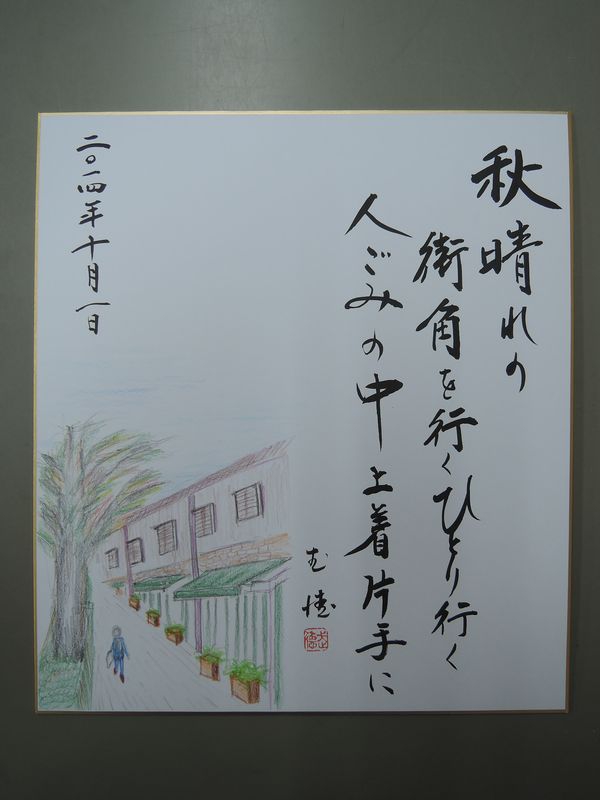 秋晴れの
街角を行くひとり行く
人ごみの中上着片手に
二〇一四年十月一日